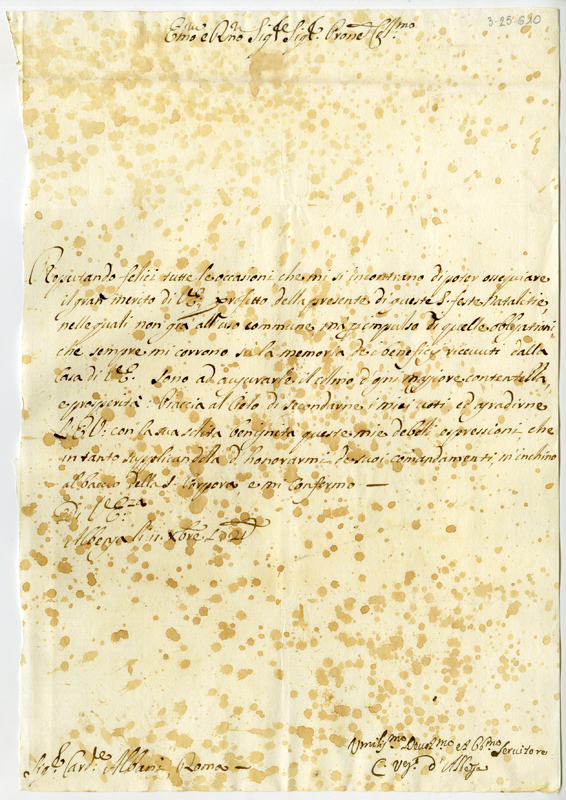 3-25-690
Em̃o e Rñо Sig.re Sig.re Prone Col.mo
Reputando felici tutte le occasioni che mi si incontrano di poter ossequiare
il gran merito di V.E. profetto della presente di queste S. feste Natalitie,
nelle quali non già all'uso commune, ma p impulso di quelle obligationi,
che sempre mi corrono su la memoria de' beneficij ricevuti dalla
Casa di V.E. sono ad augurarle il colmo d'ogni maggiore contentezza,
e prosperità: Piaccia al Cielo di secondarne i miei voti, e gradirne
L'E.V. con la sua solita benignità queste mie deboli espressioni che
intanto supplicandola d'honorarmi de suoi comandamenti, m'inchino
al baccio della S. Porpora e mi confermo —
Di V.E.za
li 11 Xbre
Sig.r Card.le Albani, Roma —
Umilis.mo Devot.mo et Ob.mo Servitore
C. Ves.o d'